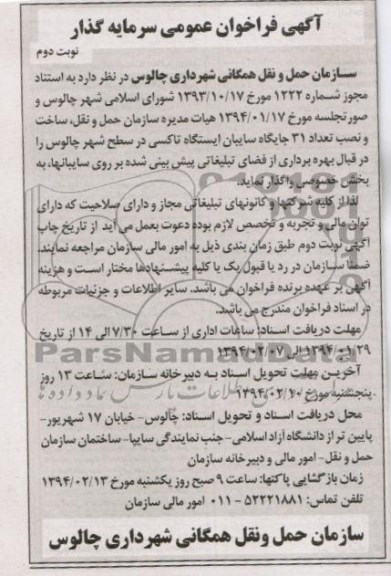 آگهی فراخوان عمومی سرمایه گذار
نوبت دوم
سازمان حمل و نقل همگانی شهرداری چالوس در نظر دارد به استناد
مجوز شماره ۱۲۲۲ مورخ ۱۳۹۳/۱۰/۱۷ شورای اسلامی شهر چالوس و
صورتجلسه مورخ ۱۳۹۴/۰۱/۱۷ هیات مدیره سازمان حمل و نقل، ساخت
و نصب تعداد ۳۱ جایگاه سایبان ایستگاه تاکسی در سطح شهر چالوس را
در قبال بهره برداری از فضای تبلیغاتی پیش بینی شده بر روی سایبانها، به
بخش خصوصی واگذار نماید.
لذا از کلیه شرکتها و کانونهای تبلیغاتی مجاز و دارای صلاحیت که دارای
توان مالی و تجربه و تخصص لازم بوده دعوت بعمل می آید از تاریخ چاپ
آگهی نوبت دوم طبق زمان بندی ذیل به امور مالی سازمان مراجعه نمایند.
ضمنا سازمان در رد یا قبول یک یا کلیه پیشنهادها مختار است و هزینه
آگهی بر عهده برنده فراخوان می باشد. سایر اطلاعات و جزئیات مربوطه
در اسناد فراخوان مندرج می باشد.
مهلت دریافت اسناد: ساعات اداری از ساعت ۷/۳۰ الی ۱۴ از تاریخ
۱۳۹۴/۰۱/۲۹ الی ۱۳۹۴/۰۲/۰۷
آخرین مهلت تحویل اسناد به دبیرخانه سازمان: ساعت ۱۳ روز
پنجشنبه مورخ ۱۳۹۴/۰۲/۱۰
محل دریافت اسناد و تحویل اسناد: چالوس- خیابان ۱۷ شهریور-
پایین تر از دانشگاه آزاد اسلامی- جنب نمایندگی سایپا- ساختمان سازمان
حمل و نقل- امور مالی و دبیرخانه سازمان
زمان بازگشایی پاکتها: ساعت ۹ صبح روز یکشنبه مورخ ۱۳۹۴/۰۲/۱۳
تلفن تماس: ۵۲۲۲۱۸۸۱ - ۰۱۱ امور مالی سازمان
سازمان حمل ونقل همگانی شهرداری چالوس
ParsNamadData